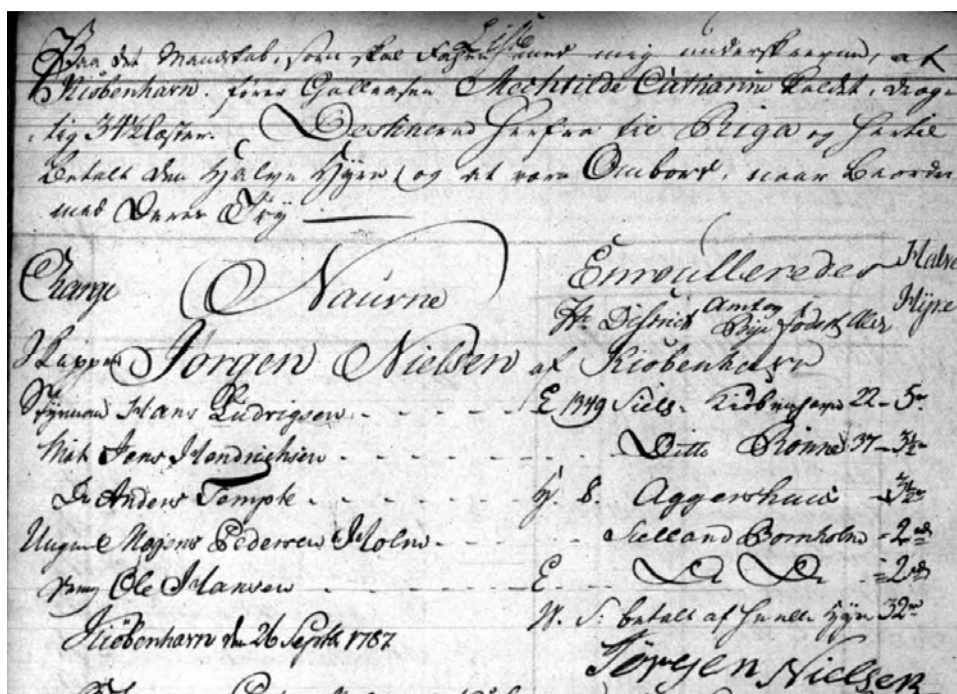 Liste
Paa det Mandskab, som skal Fahre med mig underskrevne, af
Kiøbenhavn. fører Galleasen Mechtilde Catharina kaldet, dræg-
tig 34½ Læster. Destinerend herfra til Riga og hertil
Betalt den Halve Hyre og at være Ombord, naar Beordres
med Deres Tøy
Charge Naufne Enroullerede Halve
No District Amt og Bye født Alder Hyre
Skipper Jørgen Nielsen af Kiøbenhavn
Styrmand Hans Ludvigsen E 1349 Siels. Kiøbenhavn 22 - 5
Mat Jens Hendrichsen Ditto Rønne 37 - 3½
Do Anders Tempte 8. Aggershuus 3½
Mogens Pedersen Holm Sielland Bornholm - 2
Ole Hansen E Do Do - 2
betalt af Hyre 32
Kiøbenhavn den 26 Septb 1787
Jørgen Nielsen